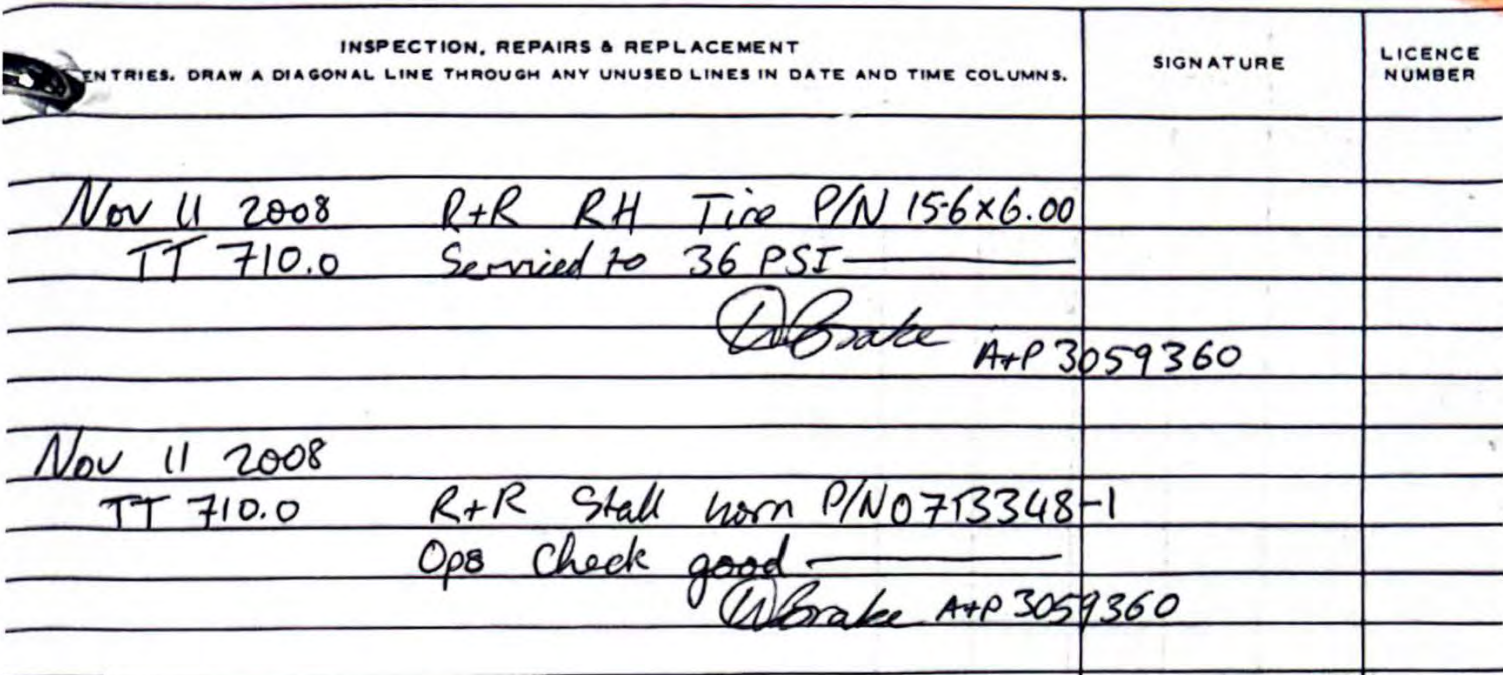 INSPECTION, REPAIRS & REPLACEMENT
ENTRIES. DRAW A DIAGONAL LINE THROUGH ANY UNUSED LINES IN DATE AND TIME COLUMNS.
SIGNATURE
LICENCE
NUMBER
Nov 11 2008 R+R RH Tire P/N 15-6x6.00
TT 710.0 Serviced to 36 PSI
Brake A+P 3059360
Nov 11 2008
TT 710.0 R+R Stall horn P/N 0713348-1
Ops Check good
Brake A+P 3059360